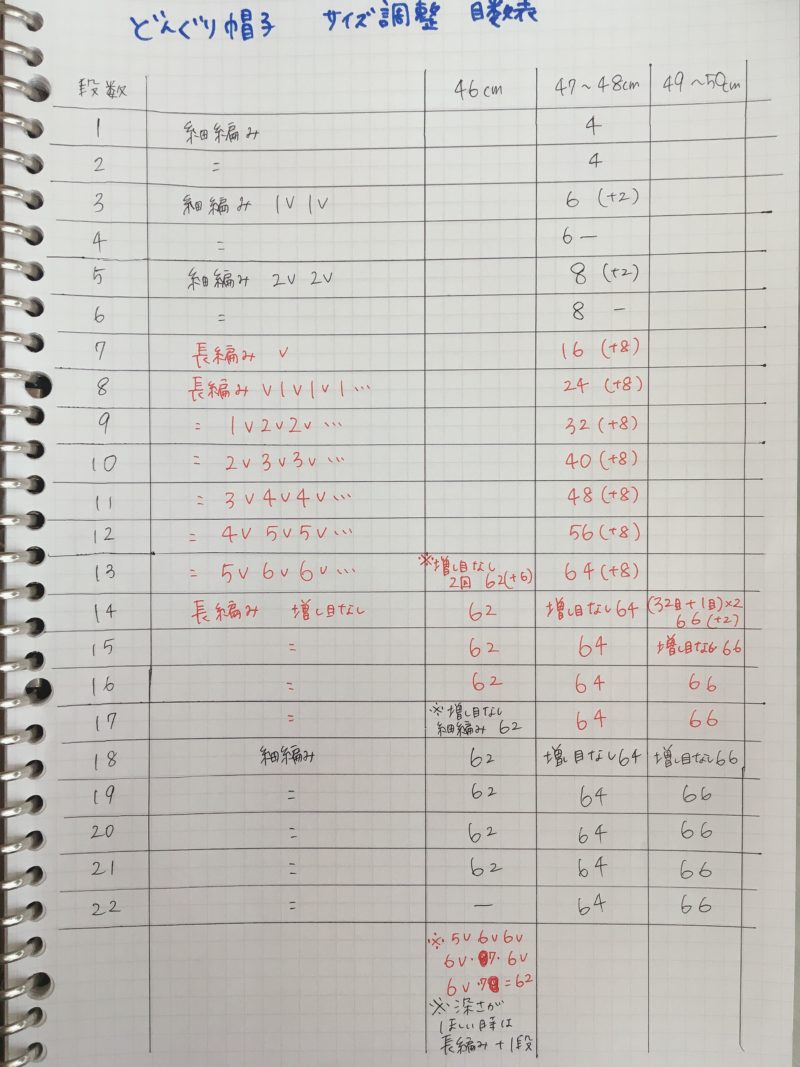 どんぐり帽子 サイズ調整 目数表
段数 46cm 47～48cm 49～50cm
1 細編み 4
2 = 4
3 細編み 1V 1V 6 (+2)
4 = 6 —
5 細編み 2V 2V 8 (+2)
6 = 8 -
7 長編み V 16 (+8)
8 長編み V1V1V1…
24 (+8)
9 = 1V2V2V … 32 (+8)
10 = 2V3V3V … 40 (+8)
11 = 3V4V4V… 48 (+8)
12 = 4V 5V 5V … 56 (+8)
13 = 5V 6V 6V … ※増し目なし 64 (+8)
2回 62(+6)
14 長編み 増し目なし 62 増し目なし64 (32目+1目)×2
66 (+2)
15 = 62 64 増し目なし 66
16 = 62 64 66
17 = ※増し目なし 64 66
細編み 62
18 細編み 62 増し目なし64 増し目なし66
19 = 62 64 66
20 = 62 64 66
21 = 62 64 66
22 = — 64 66
※ 5V 6V 6V
6V・7・6V
6V・7=62
※深さが
ほしい時は
長編み+1段